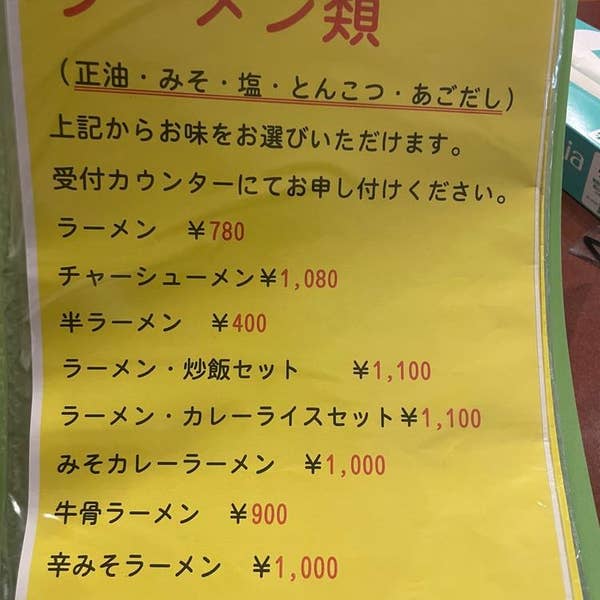 ラーメン類
(正油・みそ・塩・とんこつ・あごだし)
上記からお味をお選びいただけます。
受付カウンターにてお申し付けください。
ラーメン ¥780
チャーシューメン¥1,080
半ラーメン ¥400
ラーメン・炒飯セット ¥1,100
ラーメン・カレーライスセット¥1,100
みそカレーラーメン ¥1,000
牛骨ラーメン ¥900
辛みそラーメン ¥1,000